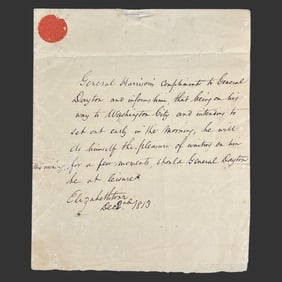 General Harrison's Compliments to General
Dayton and informs him that being on his
way to Washington City and intending to
set out early in the morning, he will
do himself the pleasure of waiting on him
this evening for a few moments, should General Dayton
be at leisure
Elizabethtown
Dec 1813